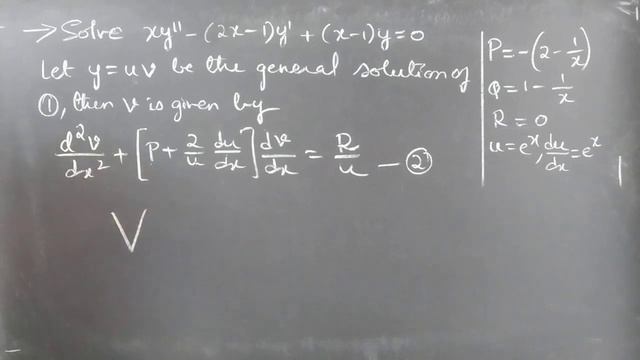 → Solve xy'' - (2x-1)y' + (x-1)y = 0
Let y = uv be the general solution of
①, then v is given by
d²v/dx² + [P + 2/u du/dx] dv/dx = R/u — ②
V
P = -(2 - 1/x)
Q = 1 - 1/x
R = 0
u = eˣ, du/dx = eˣ